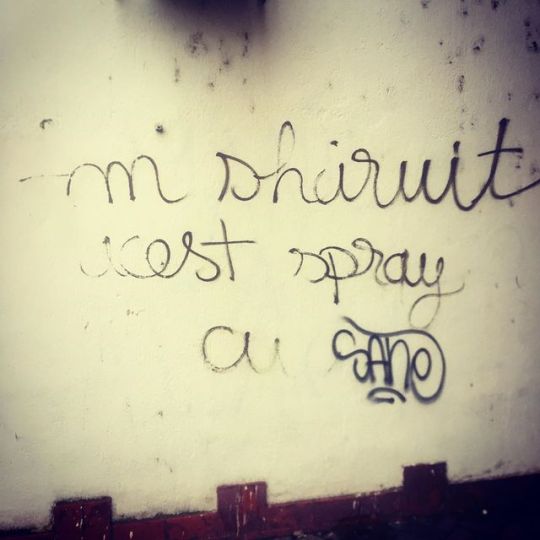 m sharuit
acest spray
cu SANE